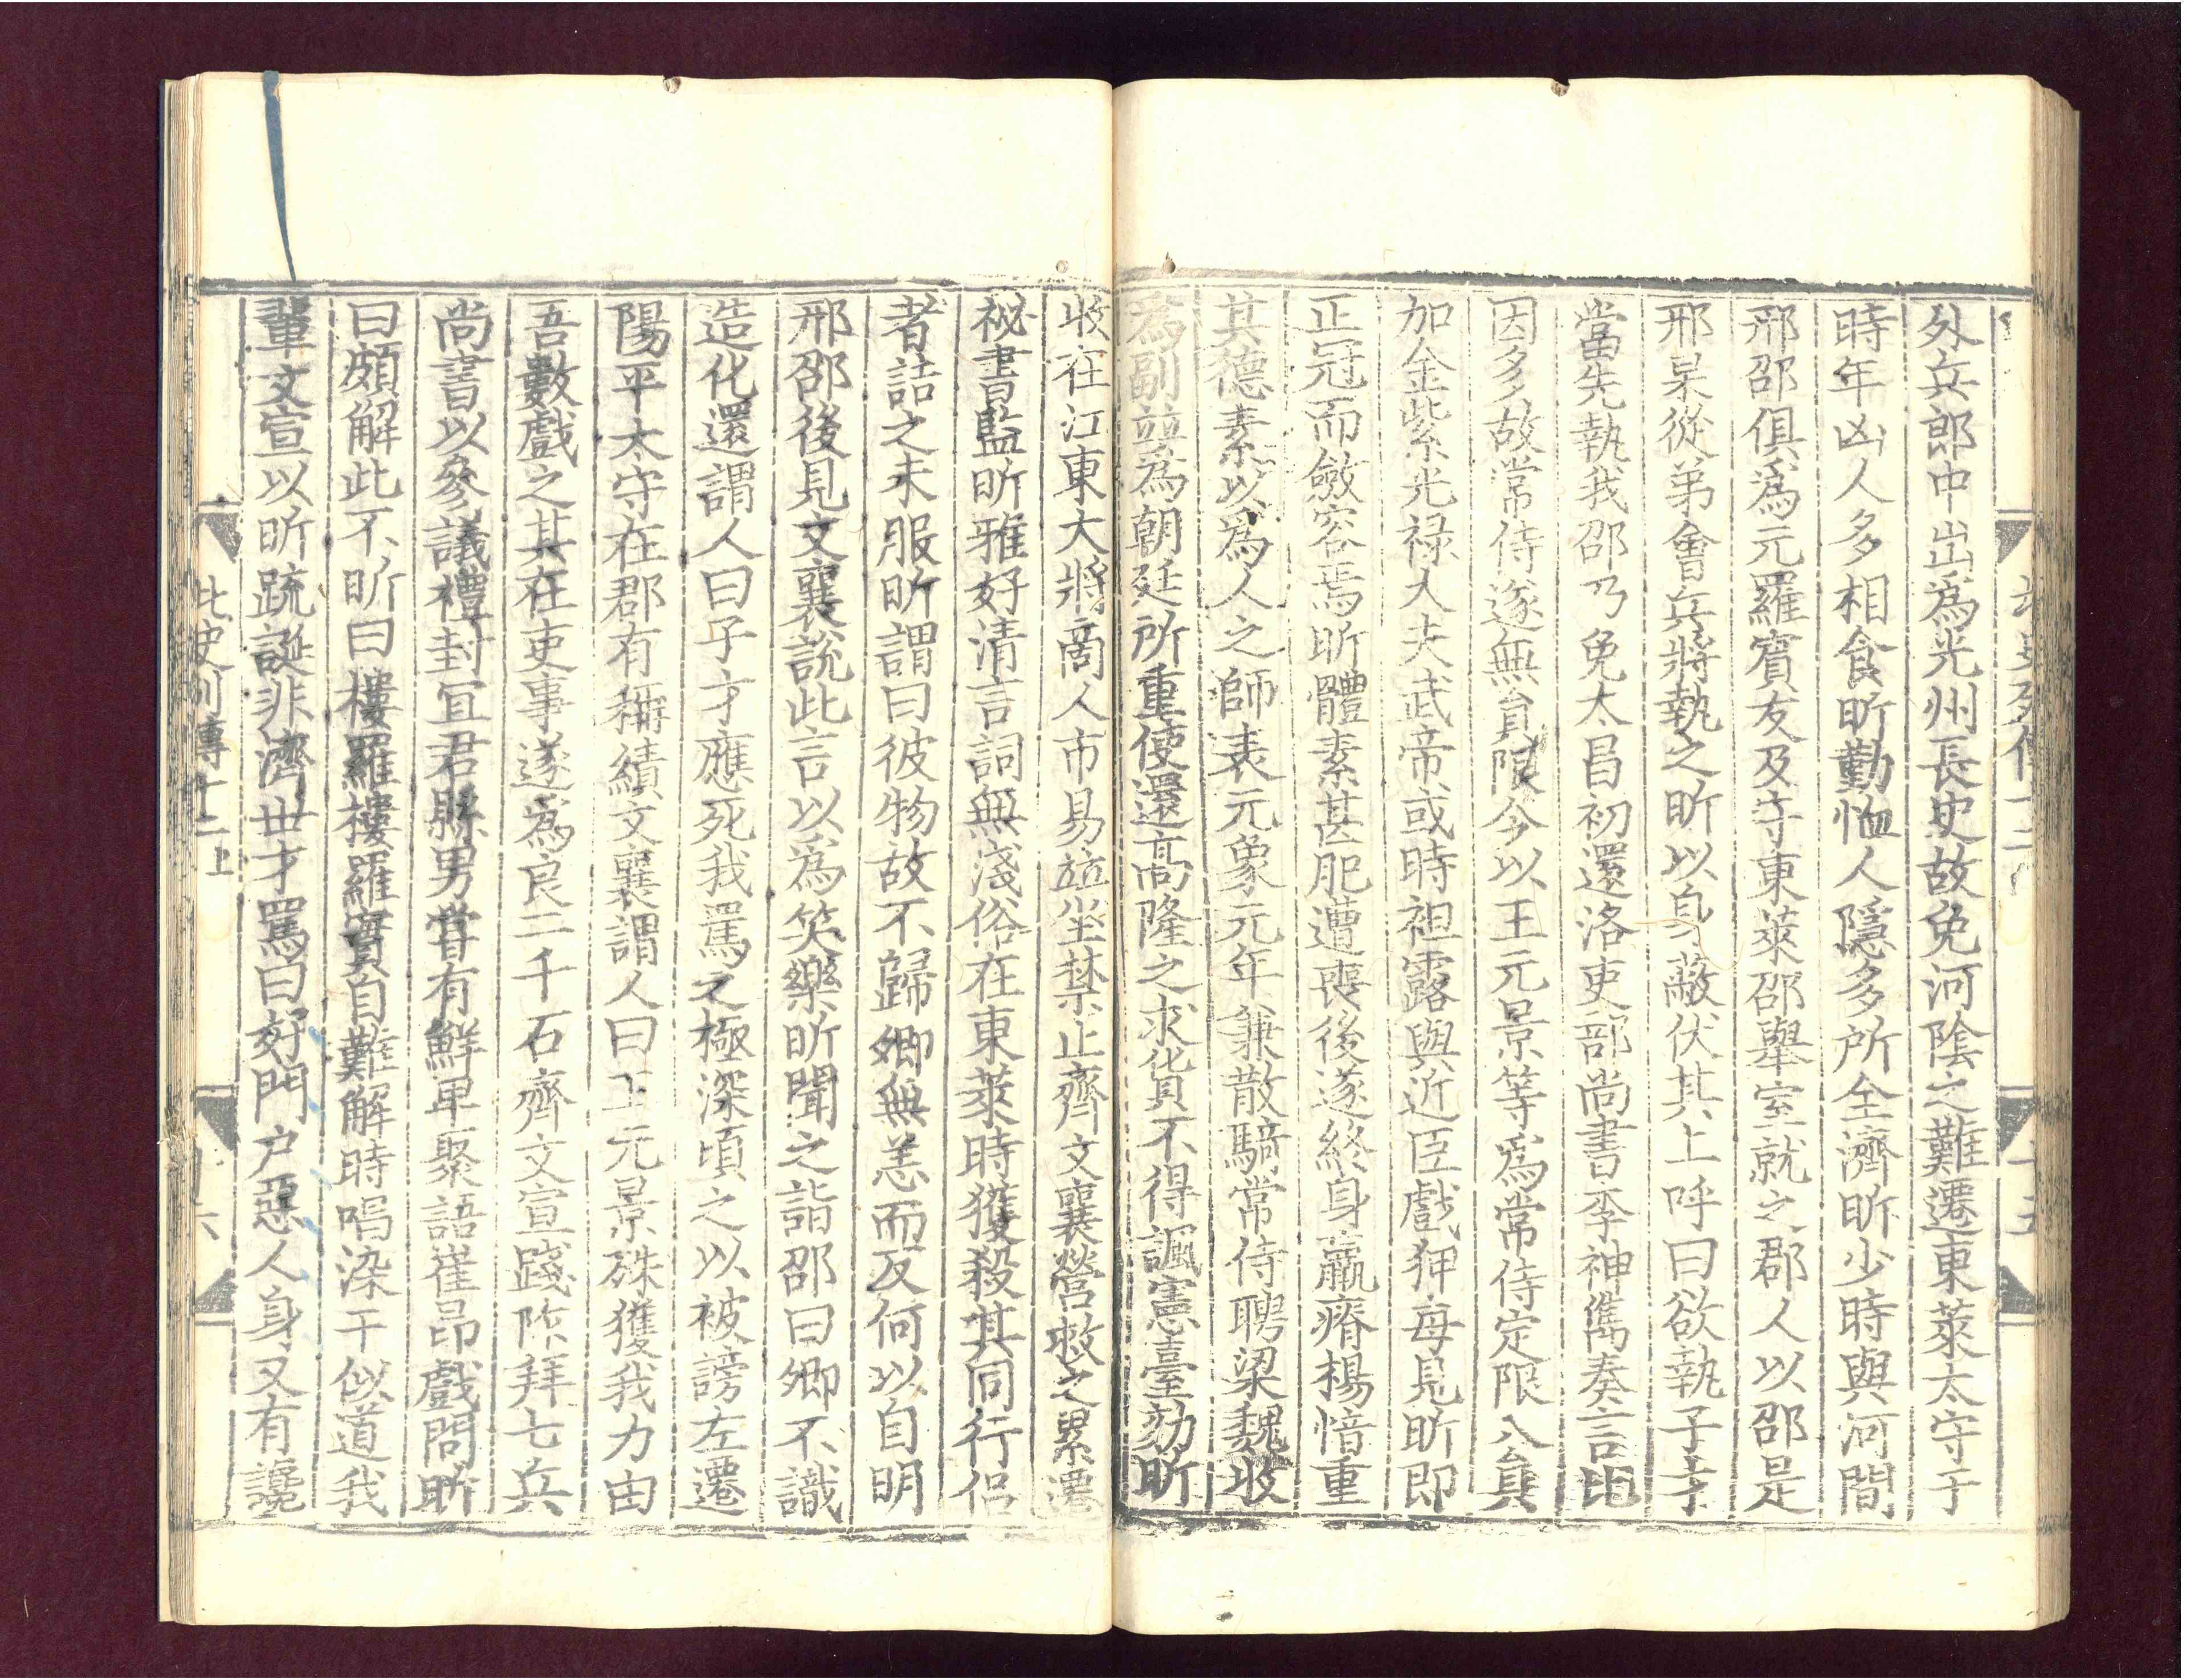 外兵郎中出爲光州長史故免河陰之難遷東萊太守于
時年凶人多相食昕勤恤人隱多所全濟昕少時與河間
邢邵俱爲元羅賓友及守東萊邵舉室就之郡人以邵是
邢杲從弟會兵將執之昕以身蔽伏其上呼曰欲執子才
當先執我邵乃免太昌初還洛吏部尚書李神儁奏言比
因多故常侍遂無員限今以王元景等爲常侍定限八員
加金紫光禄大夫武帝或時袒露與近臣戲狎每見昕即
正冠而斂容焉昕體素甚肥遭喪後遂終身羸瘠楊愔重
其德素以爲人之師表元象元年兼散騎常侍聘梁魏收
爲副並爲朝廷所重使還高隆之求化貨不得諷憲臺劾昕
收在江東大將商人市易並坐禁止齊文襄營救之累遷
祕書監昕雅好清言詞無淺俗在東萊時獲殺其同行侣
者詰之未服昕謂曰彼物故不歸卿無恙而反何以自明
邢邵後見文襄說此言以爲笑樂昕聞之詣邵曰卿不識
造化還謂人曰子才應死我罵之極深頃之以被謗左遷
陽平太守在郡有稱績文襄謂人曰王元景殊獲我力由
吾數戲之其在吏事遂爲良二千石齊文宣踐阼拜七兵
尚書以參議禮封冝君縣男甞有鮮卑聚語崔昂戲問昕
曰頗解此不昕曰樓羅樓羅實自難解時唱染干似道我
輩文宣以昕疏誕非濟世才罵曰好門户惡人身又有讒
北史列傳十二上